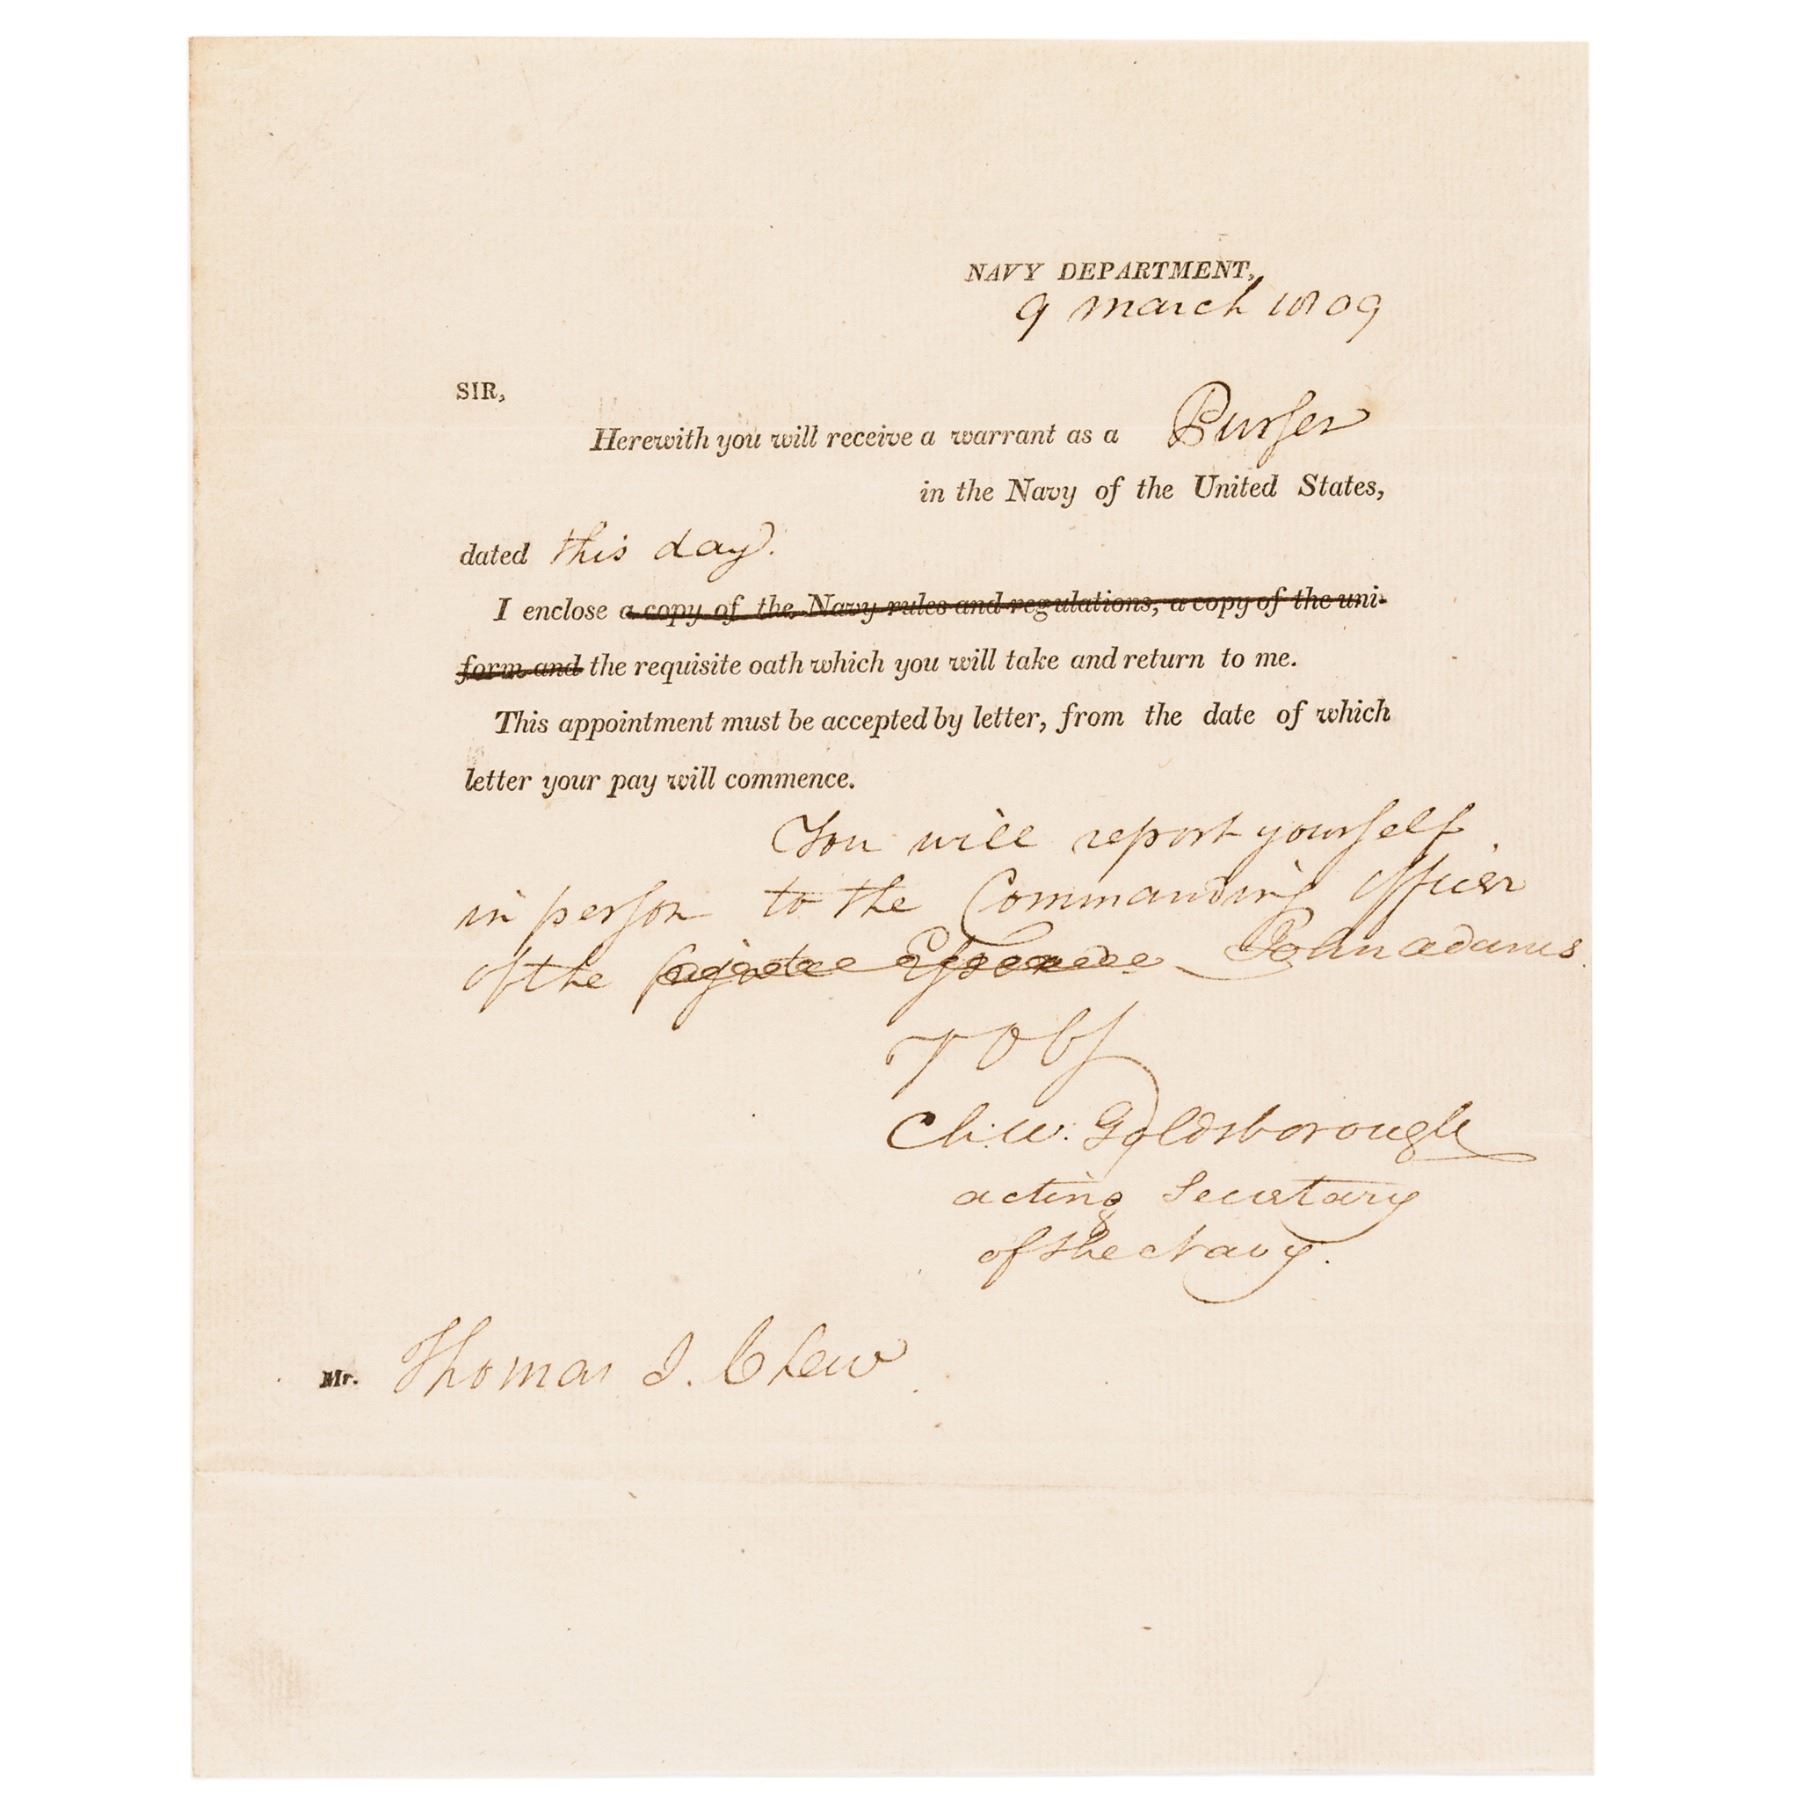 NAVY DEPARTMENT,
9 March 1809
SIR,
Herewith you will receive a warrant as a Purser
in the Navy of the United States,
dated this day.
I enclose a copy of the Navy rules and regulations, a copy of the uni-
form and the requisite oath which you will take and return to me.
This appointment must be accepted by letter, from the date of which
letter your pay will commence.
You will report yourself
in person to the Commanding Officer
of the frigate Essex John Adams.
Ch: W: Goldsborough
acting Secretary
of the Navy.
Mr. Thomas J. Chew